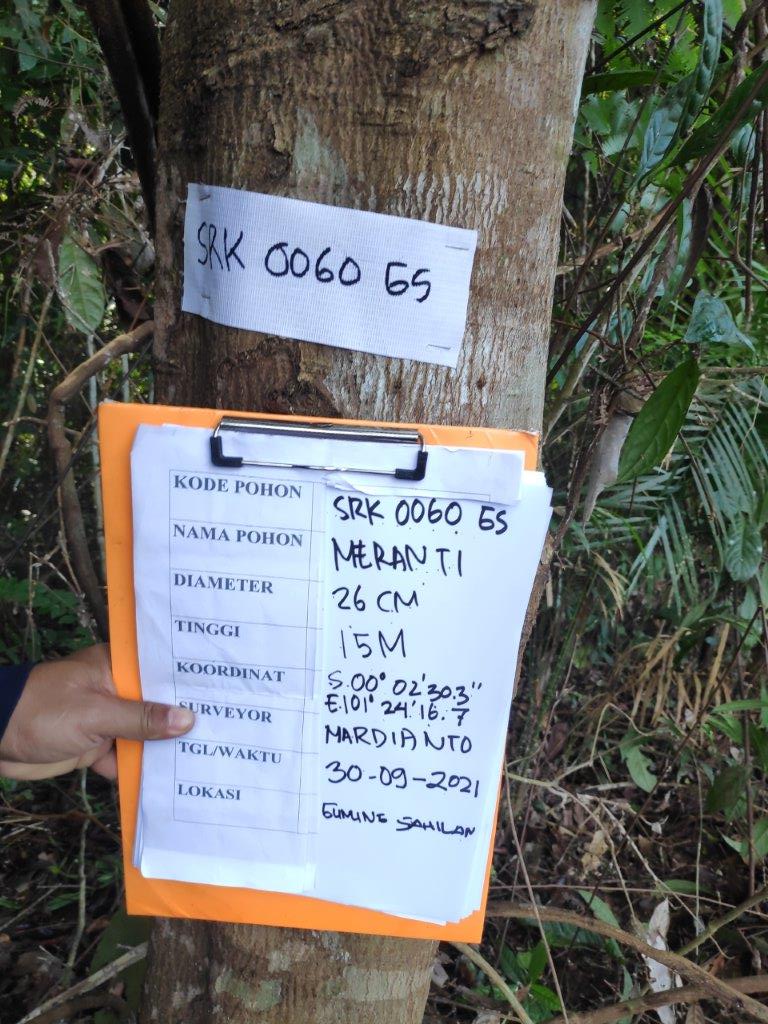 SRK 0060 GS
KODE POHON SRK 0060 GS
NAMA POHON MERANTI
DIAMETER 26 CM
TINGGI 15 M
KOORDINAT S.00° 02'30.3"
E.101° 24'.16.7
SURVEYOR MARDIANTO
TGL/WAKTU 30-09-2021
LOKASI GUNUNG SAHILAN